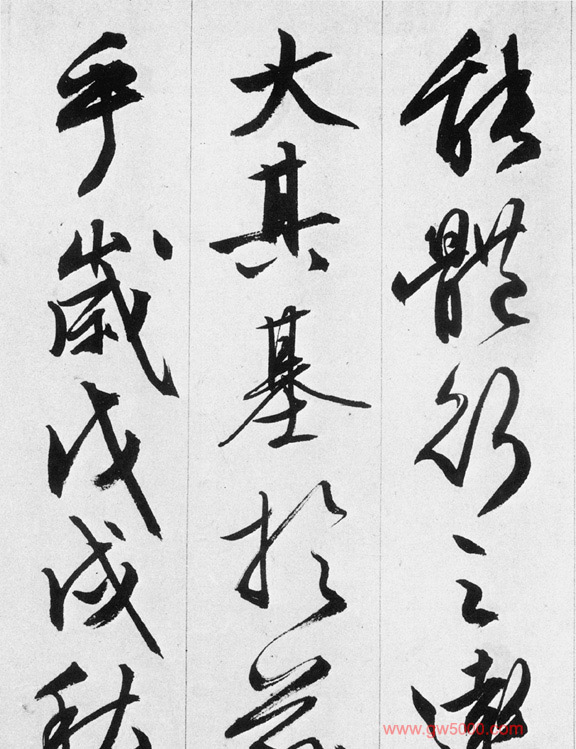 能體行之
大其基於茲
乎歲戊戌秋
www.gw5000.com